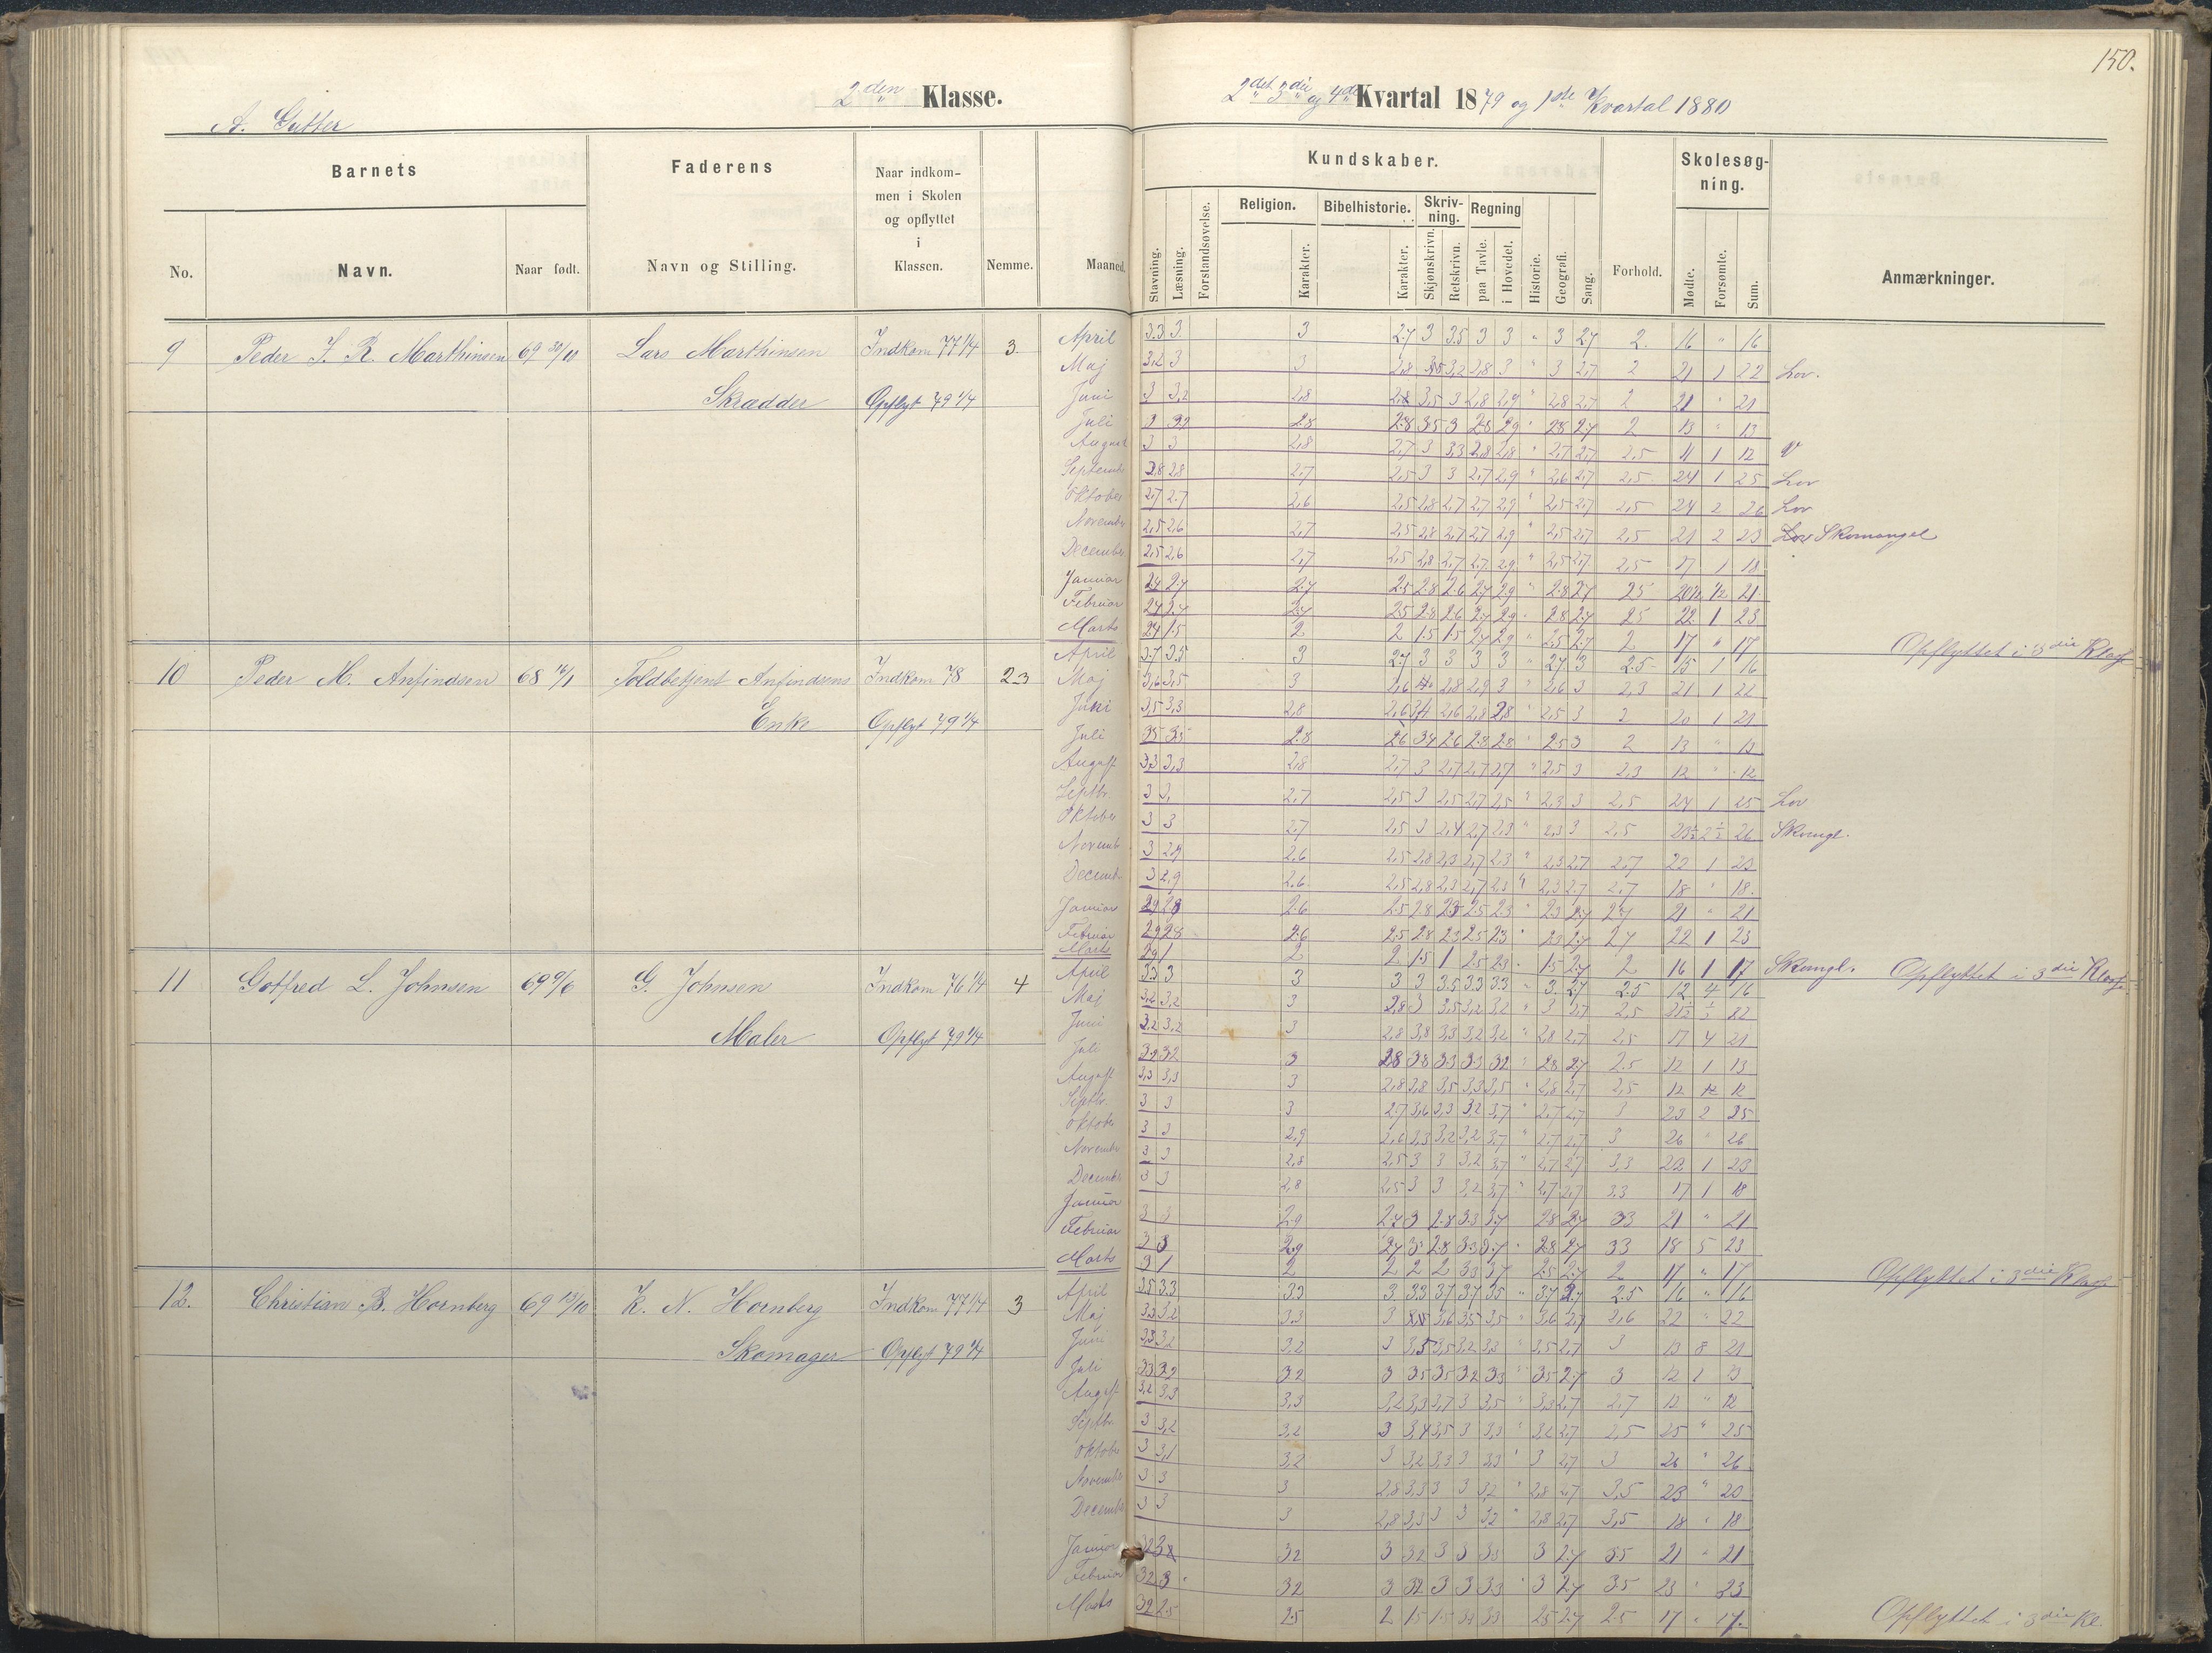 150.
2den Klasse.
2det 3die og 4de Kvartal 1879 og 1ste Kvartal 1880
A. Gutter
Barnets
Faderens
Naar indkommen i Skolen og opflyttet i Klassen.
Kundskaber.
Skolesøgning.
Religion. Bibelhistorie. Skrivning. Regning
No. Navn. Naar født. Navn og Stilling. Nemme. Maaned.
Stavning. Læsning. Forstandsøvelse. Karakter. Karakter. Skjønskrivn. Retskrivn. paa Tavle. i Hovedet. Historie. Geografi. Sang. Forhold. Mødte. Forsømte. Sum. Anmærkninger.
9 Peder J. R. Marthinsen 69 30/10 Lars Marthinsen Indkom 77 1/4 3
Skrædder Opflyt 79 1/4
April 3.3 3. 3 2.7 3 3.5 3 3 " 3 2.7 2. 16 " 16
Maj 3,2 3 3 3,2 2,8 3 " 3 2,7 2 21 1 22 Lov.
Juni 3 3,2 2,8 3,5 3 2,8 2,9 " 2,8 2,7 2 21 " 21
Juli 3 3.2 2.8 2.8 3.5 3 2.8 2.9 " 2.8 2.7 2 13 " 13
August 3 3 2,8 2,7 3 3,3 2,8 2,8 " 2,7 2,7 2,5 11 1 12
September 2,8 2,8 2,7 2,5 3 3 2,7 2,9 " 2,6 2,7 2,5 24 1 25 Lov
Oktober 2,7 2,7 2,6 2,5 2,8 2,7 2,7 2,9 " 2,5 2,7 2,5 24 2 26 Lov
November 2,5 2,6 2,7 2,5 2,8 2,7 2,7 2,9 " 2,5 2,7 2,5 21 2 23 Lov Skomangel
December 2,5 2,6 2,7 2,5 2,8 2,7 2,7 2,9 " 2,5 2,7 2,5 17 1 18
Januar 2.4 2.7 2.7 2.5 2.8 2.6 2.7 2.9 " 2.8 2.7 2.5 20 1/2 1/2 21
Februar 2.4 2.7 2.7 2.5 2.8 2.6 2.7 2.9 " 2.8 2.7 2.5 22 1 23
Marts 2.4 1.5 2 2 1.5 1.5 2.7 2.9 " 2.5 2.7 2 17 " 17 Opflyttet i 3die Klasse
10 Peder M. Anfindsen 68 16/1 Toldbetjent Anfindsens Indkom 78 2-3
Enke Opflyt 79 1/4
April 3.7 3.5 3 2.7 3 3 3 3 " 2.7 3 2.5 15 1 16
Maj 3,6 3,5 3 2,6 2,8 2,9 3 " 2,6 3 2,3 21 1 22
Juni 3,5 3,3 2,8 2,6 3,4 2,6 2,8 2,8 " 2,5 3 2 20 1 21
Juli 3.5 3.5 2.8 2.6 3.4 2.6 2.8 2.8 " 2.5 3 2 13 " 13
August 3,3 3,3 2,8 2,7 3 2,7 2,7 2,7 " 2,5 3 2,3 12 " 12
Septbr. 3 3, 2,7 2,5 3 2,5 2,7 2,5 " 2,3 3 2,5 24 1 25 Lov
Oktober 3 3 2,7 2,5 3 2,4 2,7 2,3 " 2,3 3 2,5 23 1/2 2 1/2 26 Skomgl.
Novemb 3 2,9 2,6 2,5 2,8 2,3 2,7 2,3 " 2,3 2,7 2,7 22 1 23
Decemb. 3 2,9 2,6 2,5 2,8 2,3 2,7 2,3 " 2,3 2,7 2,7 18 " 18.
Januar 2.9 2.8 2.6 2.5 2.8 2.3 2.5 2.3 " 2.3 2.7 2.7 21 " 21
Februar 2.9 2.8 2.6 2.5 2.8 2.3 2.5 2.3 " 2.3 2.7 2.7 22 1 23
Marts 2.9 1 2 2 1.5 1 2.5 2.3 " 1.5 2.7 2 16 1 17 Skomgl. Opflyttet i 3die Klasse
11 Gotfred L. Johnsen 69 9/6 G. Johnsen Indkom 76 1/4 4
Maler Opflyt 79 1/4
April 3.3 3 3 3 3 3.5 3.3 3.3 " 3. 2.7 2.5 12 4 16
Maj 3,2 3,2 3 2,8 3 3,5 3,2 3,2 " 3 2,7 2,5 21 1/2 1/2 22
Juni 3,2 3,2 3 2,8 3,8 3,3 3,2 3,2 " 2,8 2,7 2,5 17 4 21
Juli 3.2 3.2 3 2.8 3.8 3.3 3.3 3.2 " 2.8 2.7 2.5 12 1 13
August 3,3 3,3 3 2,8 3,8 3,5 3,3 3,5 " 2,8 2,7 2,5 12 12
Septbr. 3 3 3 2,7 3,6 3,3 3,2 3,7 " 2,7 2,7 3 23 2 25
Oktober 3 3 2,9 2,6 3,3 3,2 3,2 3,7 " 2,7 2,7 3 26 " 26
November 3 3 2,8 2,5 3 3 3,2 3,7 " 2,7 2,7 3,3 22 1 23
December 3 3 2,8 2,5 3 3 3,2 3,7 " 2,7 2,7 3,3 17 1 18
Januar 3 3 2.9 2.7 3 2.8 3.3 3.7 2.8 2.7 3.3 21 " 21
Februar 3 3 2.9 2.7 3 2.8 3.3 3.7 " 2.8 2.7 3.3 18 5 23
Marts 3 1 2 2 2 2 3.3 3.7 2.5 2.7 2 17 " 17 Opflyttet i 3die Klasse
12. Christian B. Hornberg 69 13/10 K. N. Hornberg Indkom 77 1/4 3
Skomager Opflyt 79 1/4
April 3.5 3.3 3.3 3. 3.3 3.7 3.7 3.5 " 3.7 2.7 2.5 16 " 16
Maj 3,3 3,2 3,3 3 3,6 3,5 3,5 " 3,6 2,7 2,6 22 " 22
Juni 3,3 3,2 3,2 3 3,5 3,5 3,2 3,3 " 3,5 2,7 3 13 8 21
Juli 3.3 3.2 3.2 3 3.5 3.5 3.2 3.3 " 3.5 2.7 3 12 1 13
August 3,2 3,3 3,3 3,2 3,3 3,7 3 3,5 " 3,3 2,7 2,7 12 " 12
Septbr. 3 3,2 3,2 3 3,4 3,5 3 3,3 " 3,2 2,7 2,5 25 " 25
Oktober 3 3,1 3,2 3 3,2 3,3 3 3,3 " 3 2,7 3 26 " 26
November 3 3 3 2,8 3,3 3 3 3,2 " 2,8 2,7 3,5 23 " 23
December 3 3 3 2,8 3,3 3 3 3,2 " 2,8 2,7 3,5 18 " 18
Januar 3.2 3.2 3 3.2 3 3 3.3 3 2.7 3.5 21 " 21
Februar 3.2 3 3.2 3 3.2 3 3 3.3 " 3 2.7 3.5 23 " 23
Marts 3.2 2.5 2.5 2 1.5 1.5 3.3 2.5 2.7 2.5 17 " 17. Opflyttet i 3die Kl.